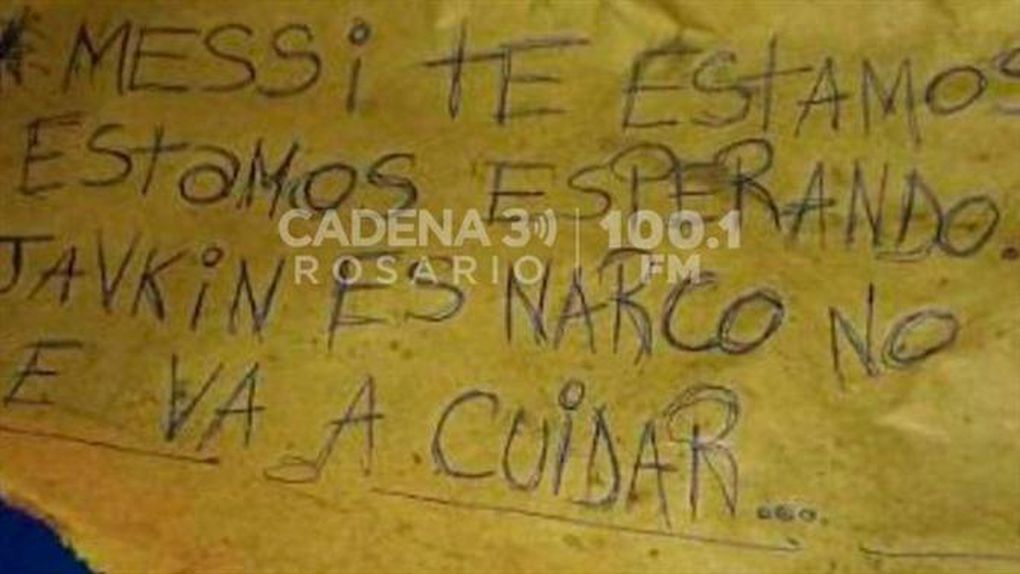 MESSi TE ESTAMOS
EStaMOS ESPERANDO.
JAVKiN ES NARCO NO
E VA A CUiDAR....
CADENA 3 | 100.1
ROSARIO | FM